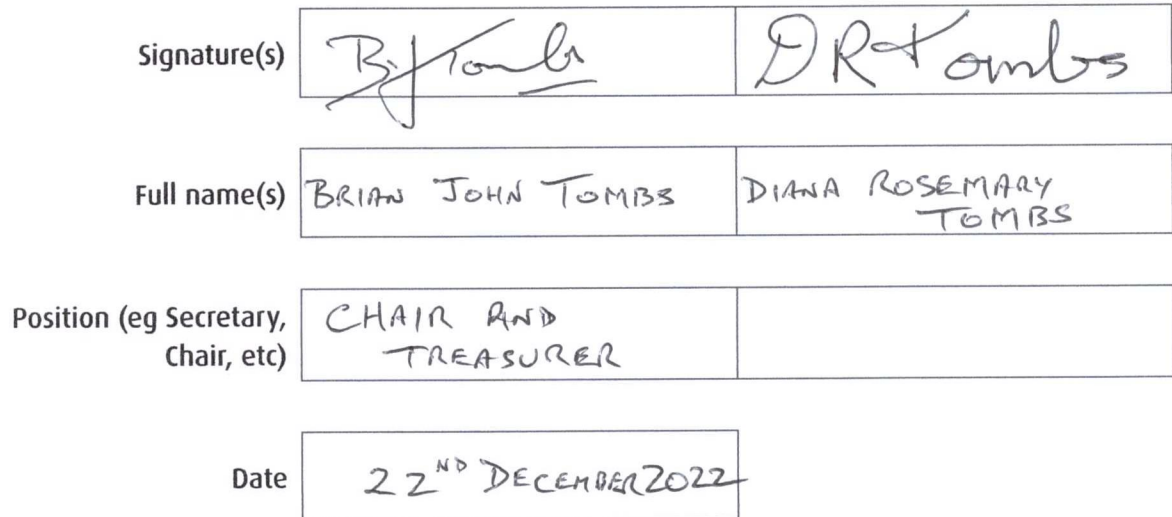 Signature(s) BJTombs DRTombs
Full name(s) BRIAN JOHN TOMBS DIANA ROSEMARY
TOMBS
Position (eg Secretary, CHAIR AND
Chair, etc) TREASURER
Date 22ND DECEMBER 2022